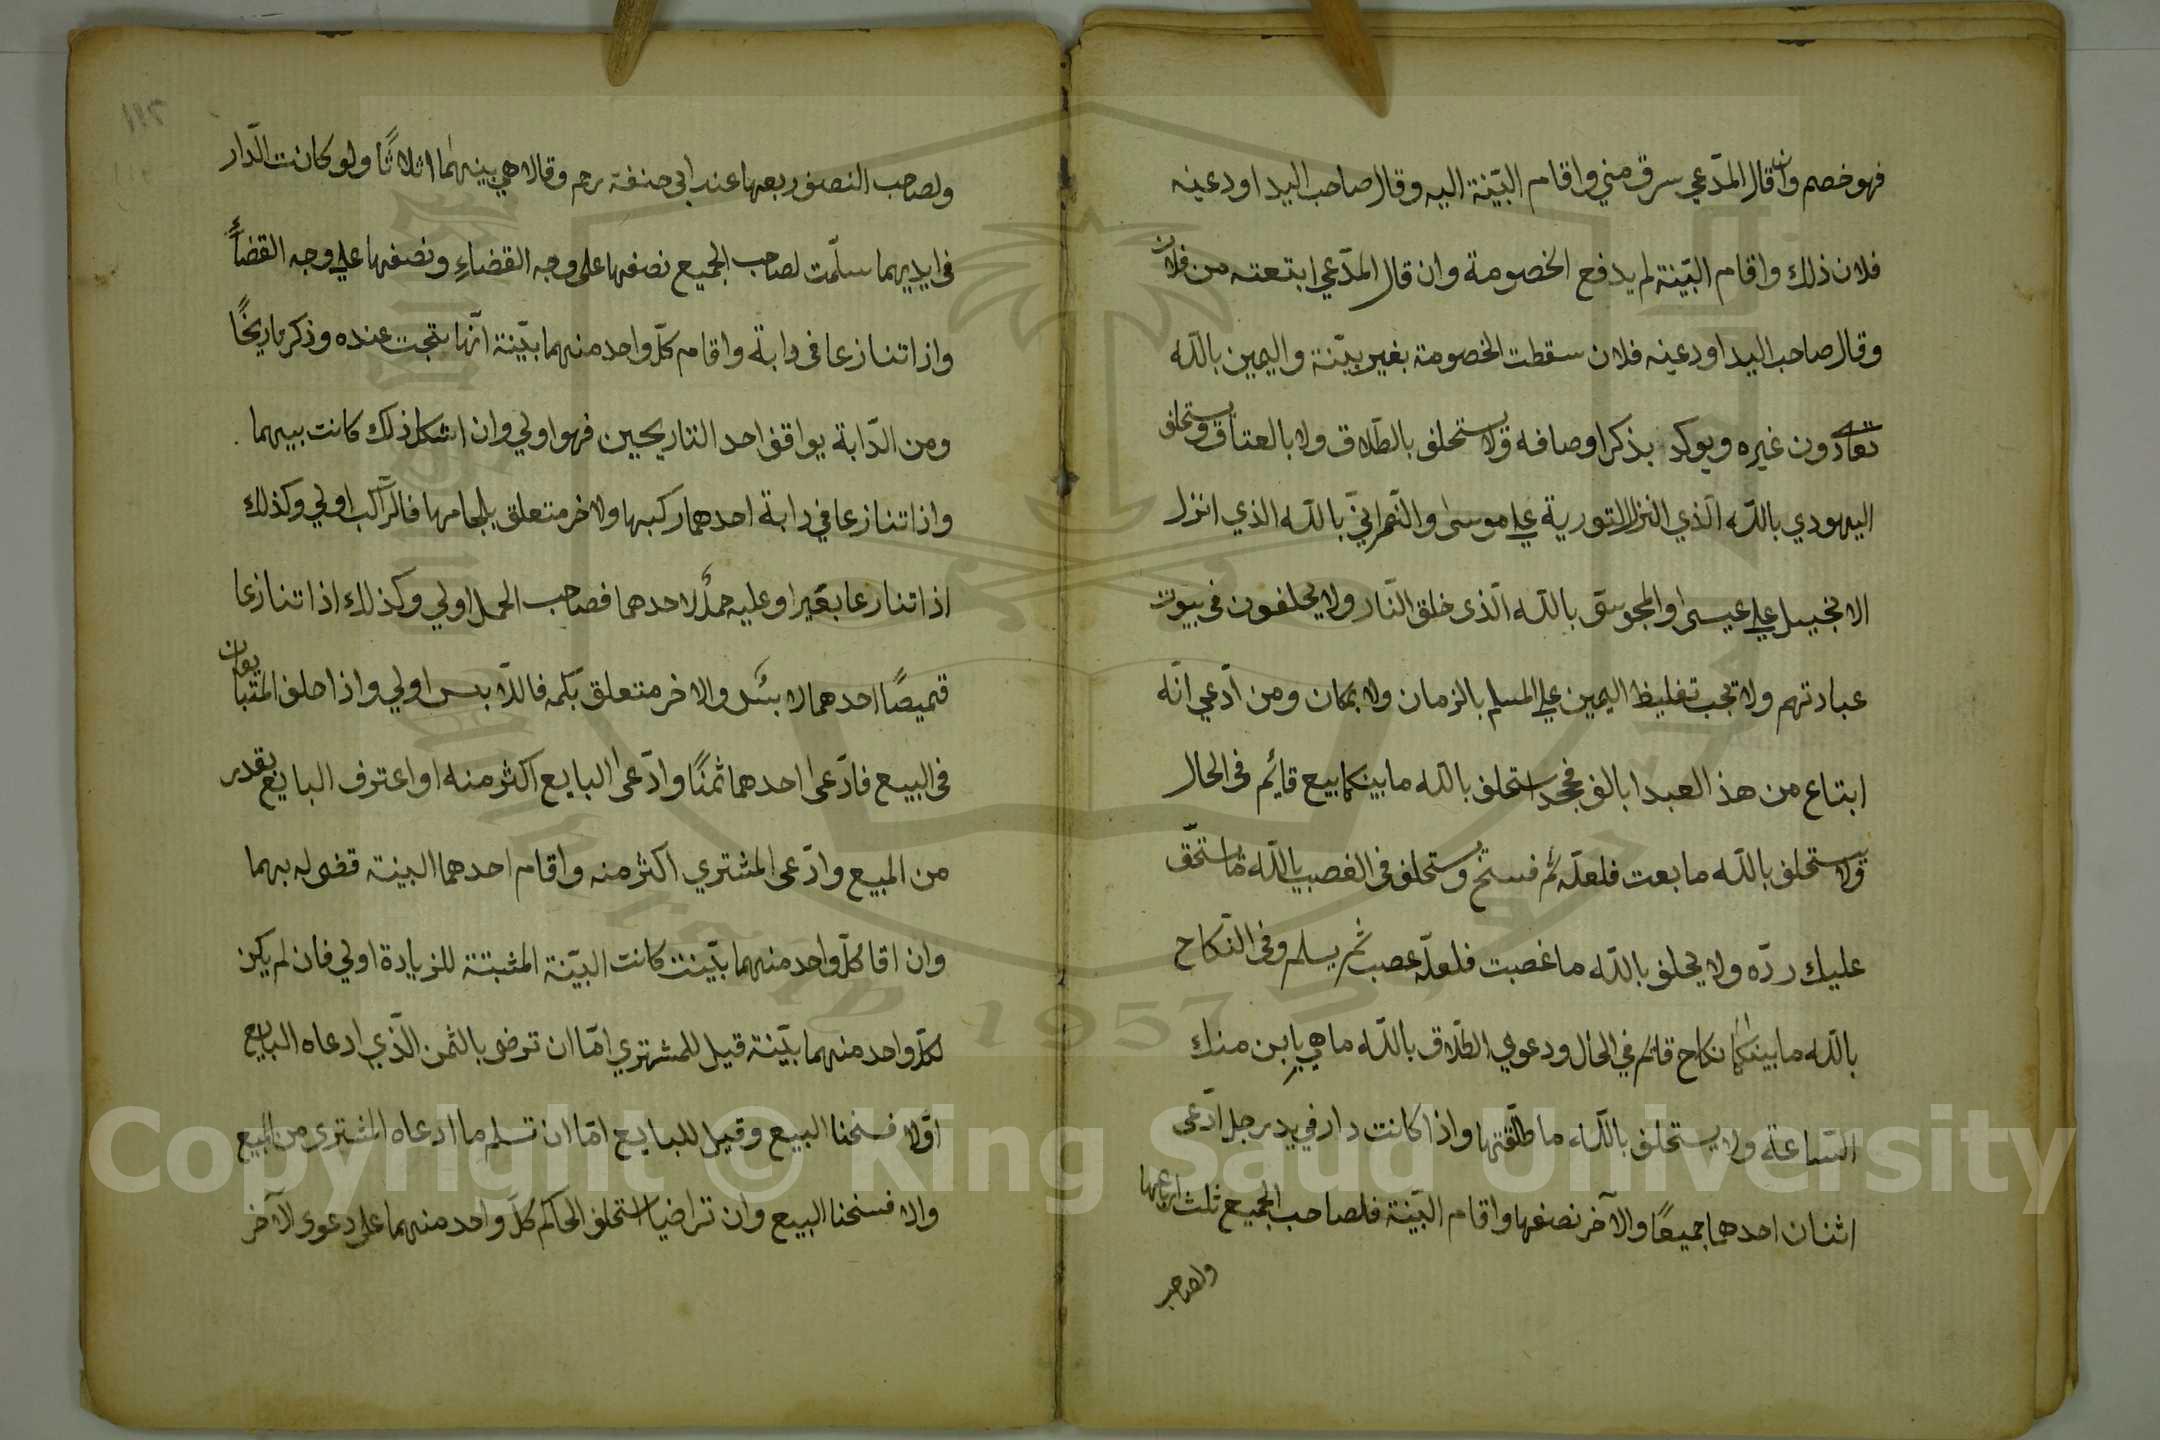 فهو خصم وان قال المدّعي سرق مني واقام البيّنة اليه وقال صاحب اليد اودعنيه
فلان ذلك واقام البيّنة لم يدفع الخصومة وان قال المدّعي ابتعته من فلان
وقال صاحب اليد اودعنيه فلان سقطت الخصومة بغير بيّنة واليمين بالله
تعالى دون غيره ويوكد بذكر اوصافه ولا يستحلف بالطّلاق ولا بالعتاق ويستحلف
اليهودي بالله الّذي انزل التورية علي موسى والنّصرانيّ بالله الذي انزل
الانجيل علي عيسى والمجوسيّ بالله الّذى خلق النّار ولا يحلفون فى بيوت
عباداتهم ولا تجب تغليظ اليمين علي المسلم بالزمان ولا بمكان ومن ادّعي انّه
ابتاع من هذ العبدا بالف فجحد استحلف بالله ما بينكما بيع قائم فى الحال
ولا يستحلف بالله ما بعت فلعلّه ثم فسخ ويستحلف فى الغصب بالله ما يستحقّ
عليك ردّه ولا يحلف بالله ما غصبت فلعلّه غصب ثم يسلم وفى النّكاح
بالله ما بينكما نكاح قائم في الحال ودعوي الطّلاق بالله ما هي باين منك
السّاعة ولا يستحلف بالله ما طلّقتها واذا كانت دار في يد رجل ادّعى
اثنان احدهما جميعًا والآخر نصفها واقام البيّنة فلصاحب الجميع ثلث ارباعها
ولصاحب
ولصاحب النصف ربعها عند ابى حنفة رحم وقالا هي بينهما اثلاثًا ولو كانت الدّار
فى ايديهما سلّمت لصاحب الجميع نصفها على وجه القضاءِ ونصفها علي وجه القضأ
واذا تنازعا فى دابة واقام كلّ واحد منهما بيّنة انّها نتجت عنده وذكر تاريخًا
ومن الدّابة يوافق احد التاريحين فهو اولي وان اشكل ذلك كانت بينهما
واذا تنازعا في دابة احدهما ركبها ولاخر متعلق بلجامها فالرّاكب اولي وكذلك
اذا تنارعا بعيرا وعليه حملٌ لاحدهما فصاحب الحمل اولي وكذلك اذا تنازعا
قميصًا احدهما لابسٌ والاخر متعلق بكمه فاللّابس اولي واذا حلف المتبايعان
فى البيع فادّعى احدهما ثمنًا وادّعى البايع اكثر منه او اعترف البايع بقدر
من المبيع وادّعى المشتري اكثر منه واقام احدهما البينة قضى له بهما
وان اقا كلّ واحد منهما بيّنت كانت البيّنة المثبتة للزيادة اولي فان لم يكن
لكلّ واحد منهما بيّنة قيل للمشتري امّا ان ترضى بالثمن الّذي ادعاه البايع
اوّلا فسخنا البيع وقيل للبايع امّا ان تسلم ما ادعاه المشترى من المبيع
والا فسخنا البيع وان تراضيا استحلف الحاكم كلّ واحد منهما على دعوى الآخر
Copyright © King Saud University
1957